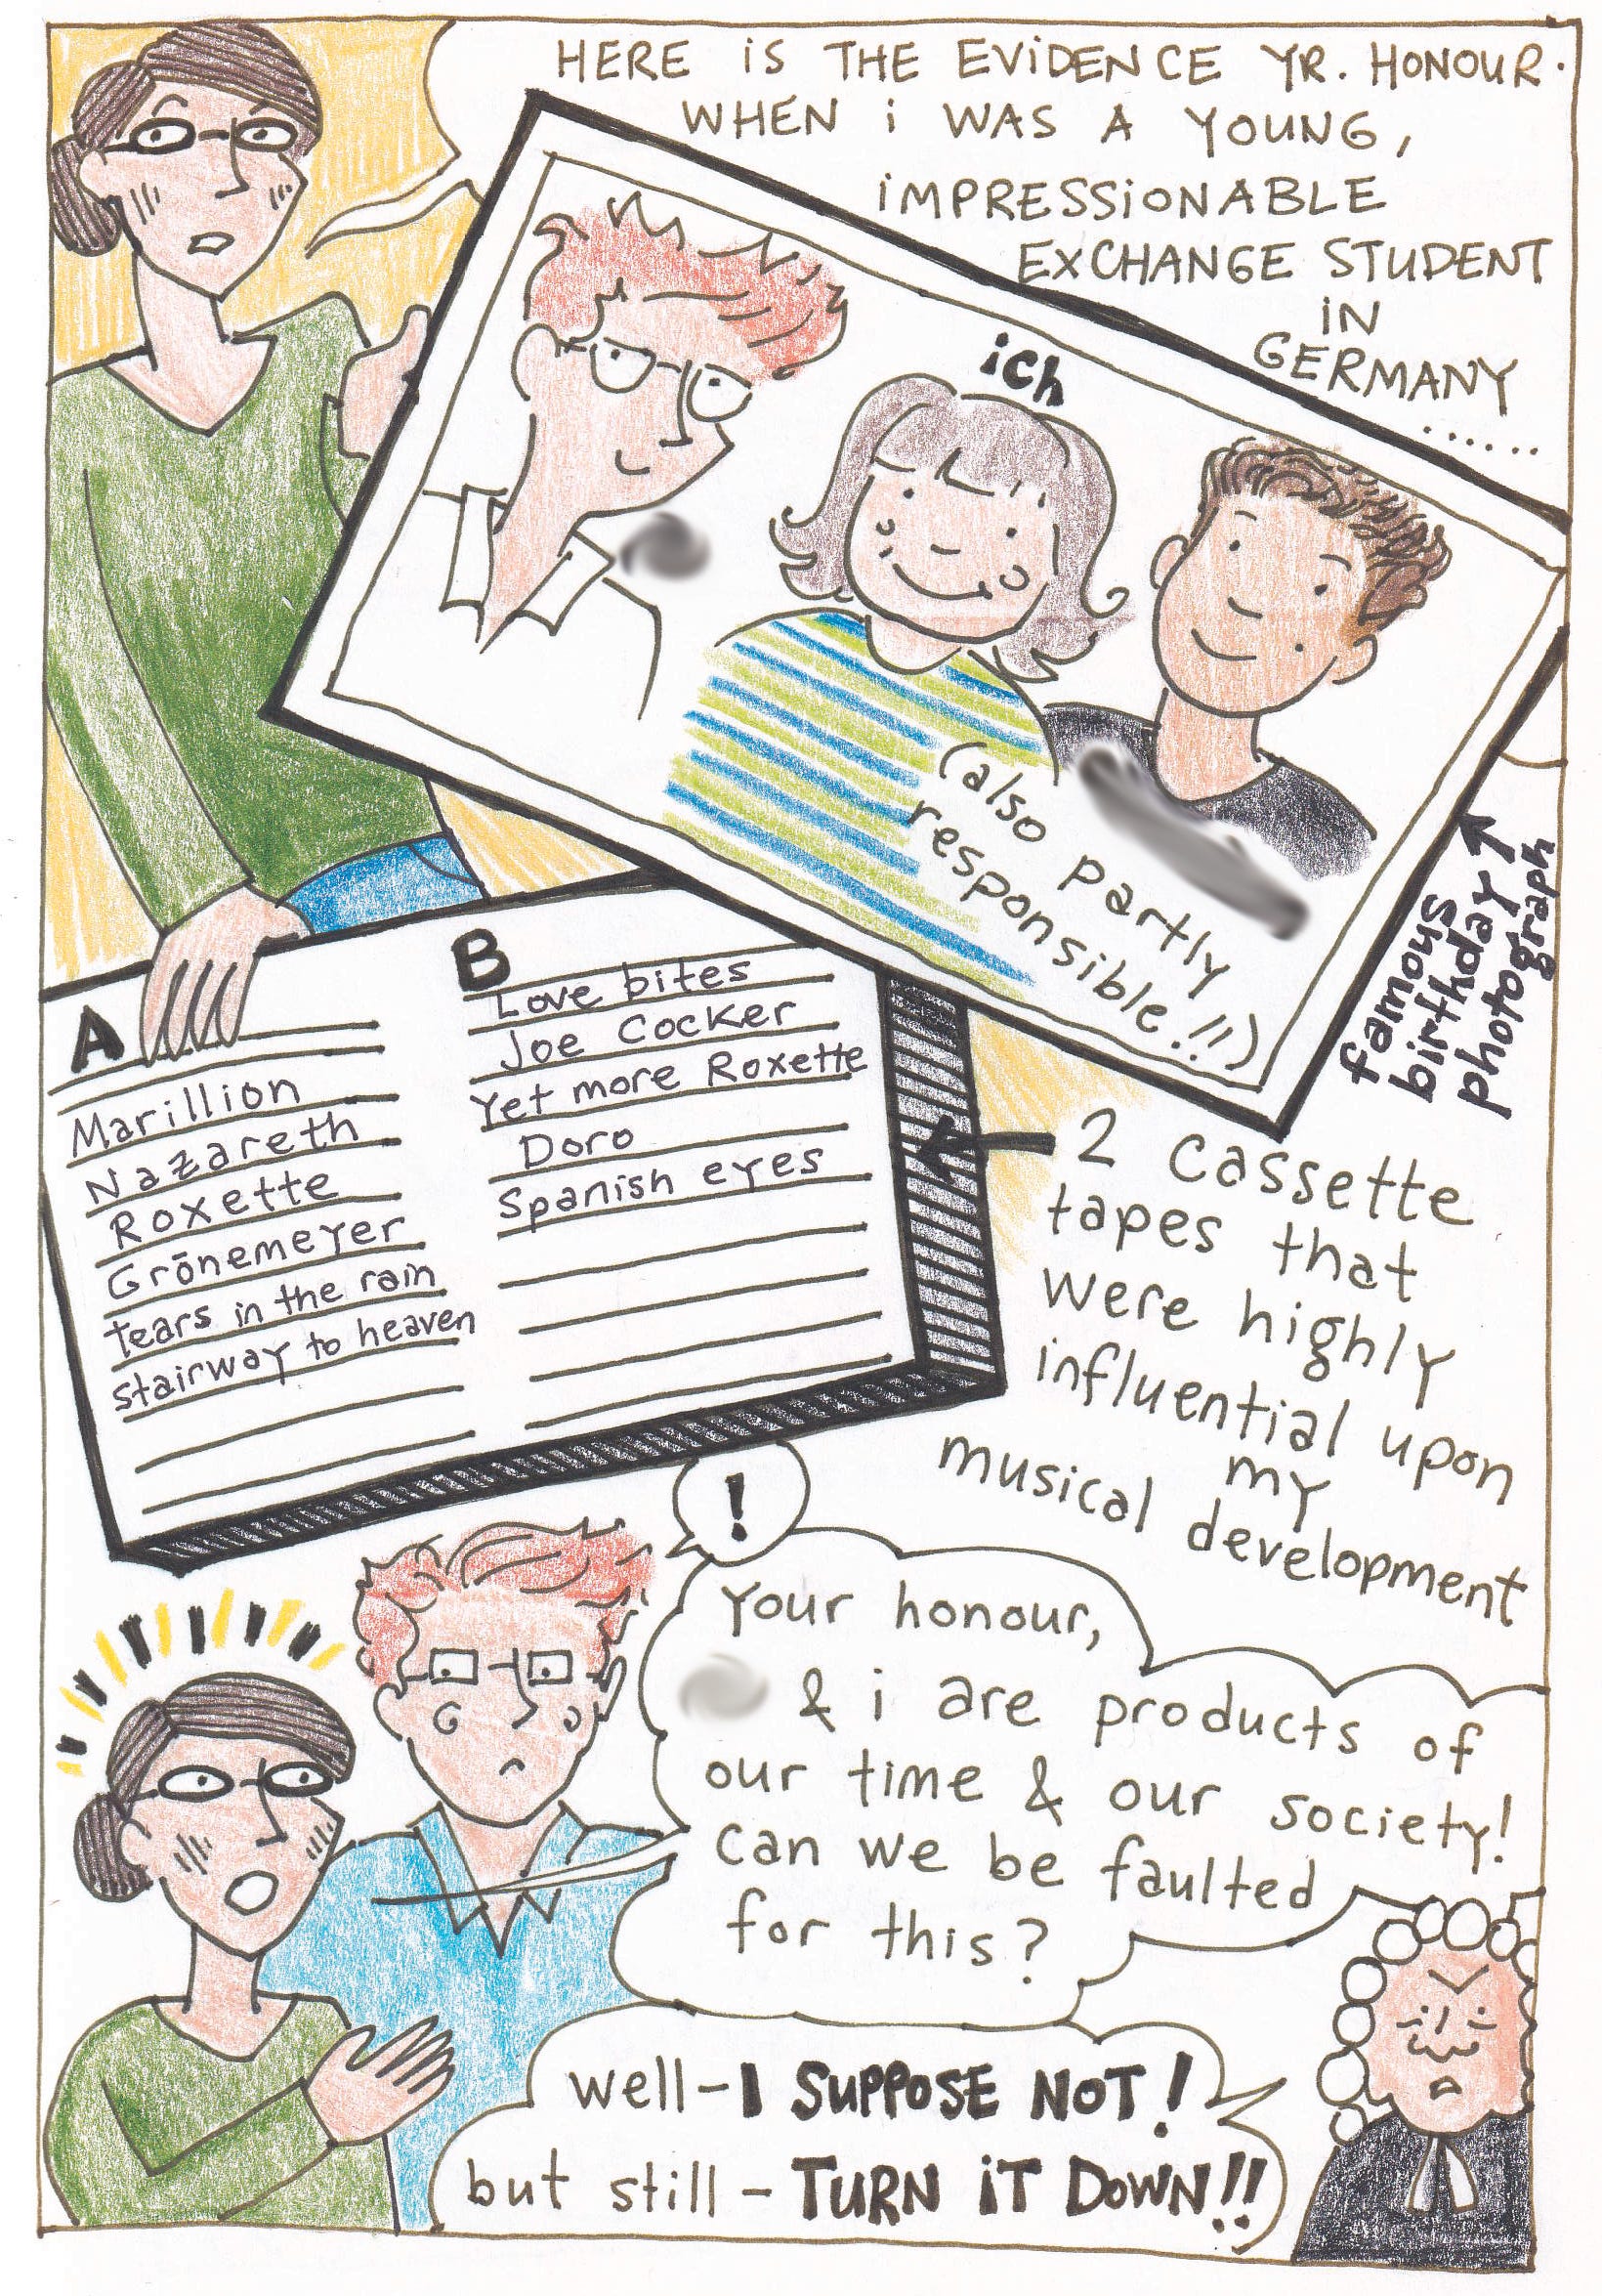 HERE iS THE EViDENCE YR. HONOUR.
WHEN i WAS A YOUNG,
iMPRESSiONABLE
EXCHANGE STUDENT
iN
GERMANY
......
ich
(also partly
responsible!!)
famous
birthday
photograph
A
Marillion
Nazareth
Roxette
Grōnemeyer
tears in the rain
stairway to heaven
B
Love bites
Joe Cocker
Yet more Roxette
Doro
Spanish eyes
2 cassette
tapes that
were highly
influential upon
my
musical development
!
Your honour,
& i are products of
our time & our society!
can we be faulted
for this?
well - I SUPPOSE NOT!
but still - TURN iT DOWN!!